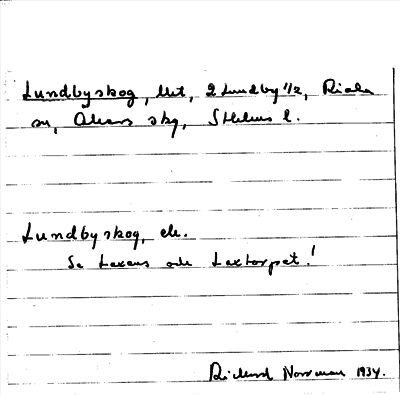 Lundbyskog, lht, 2 Lundby 1/2, Riala
sn, Åkers skg, Sthlms l.
Lundbyskog, ele.
Se Laxens och Laxtorpet!
Rickard Norrman 1934.